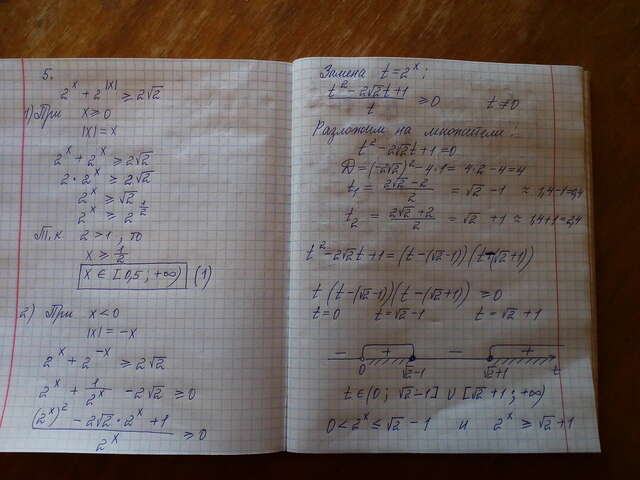 5.
2^x + 2^|x| ≥ 2√2
1) При x ≥ 0
|x| = x
2^x + 2^x ≥ 2√2
2 · 2^x ≥ 2√2
2^x ≥ √2
2^x ≥ 2^(1/2)
Т.к. 2 > 1, то
x ≥ 1/2
x ∈ [0,5; +∞) (1)
2) При x < 0
|x| = -x
2^x + 2^-x ≥ 2√2
2^x + 1/2^x - 2√2 ≥ 0
((2^x)^2 - 2√2 · 2^x + 1)/2^x ≥ 0
Замена t = 2^x;
(t^2 - 2√2t + 1)/t ≥ 0 t ≠ 0
Разложим на множители:
t^2 - 2√2t + 1 = 0
D = (-2√2)^2 - 4·1 = 4·2 - 4 = 4
t1 = (2√2 - 2)/2 = √2 - 1 ≈ 1,4 - 1 = 0,4
t2 = (2√2 + 2)/2 = √2 + 1 ≈ 1,4 + 1 = 2,4
t^2 - 2√2t + 1 = (t - (√2 - 1))(t - (√2 + 1))
t (t - (√2 - 1))(t - (√2 + 1)) ≥ 0
t = 0 t = √2 - 1 t = √2 + 1
- + - +
0 √2-1 √2+1 t
t ∈ (0; √2 - 1] ∪ [√2 + 1; +∞)
0 < 2^x ≤ √2 - 1 и 2^x ≥ √2 + 1